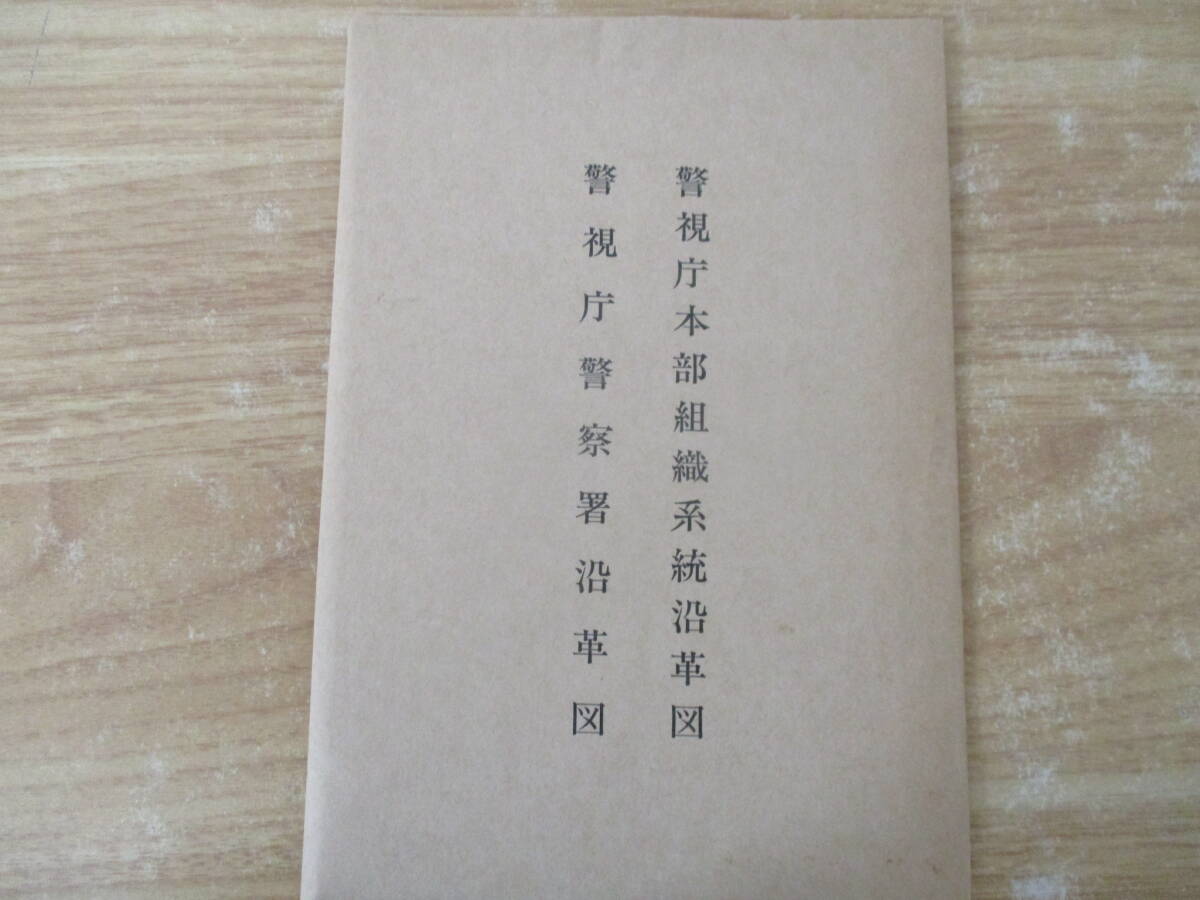 警視庁本部組織系統沿革図
警視庁警察署沿革図